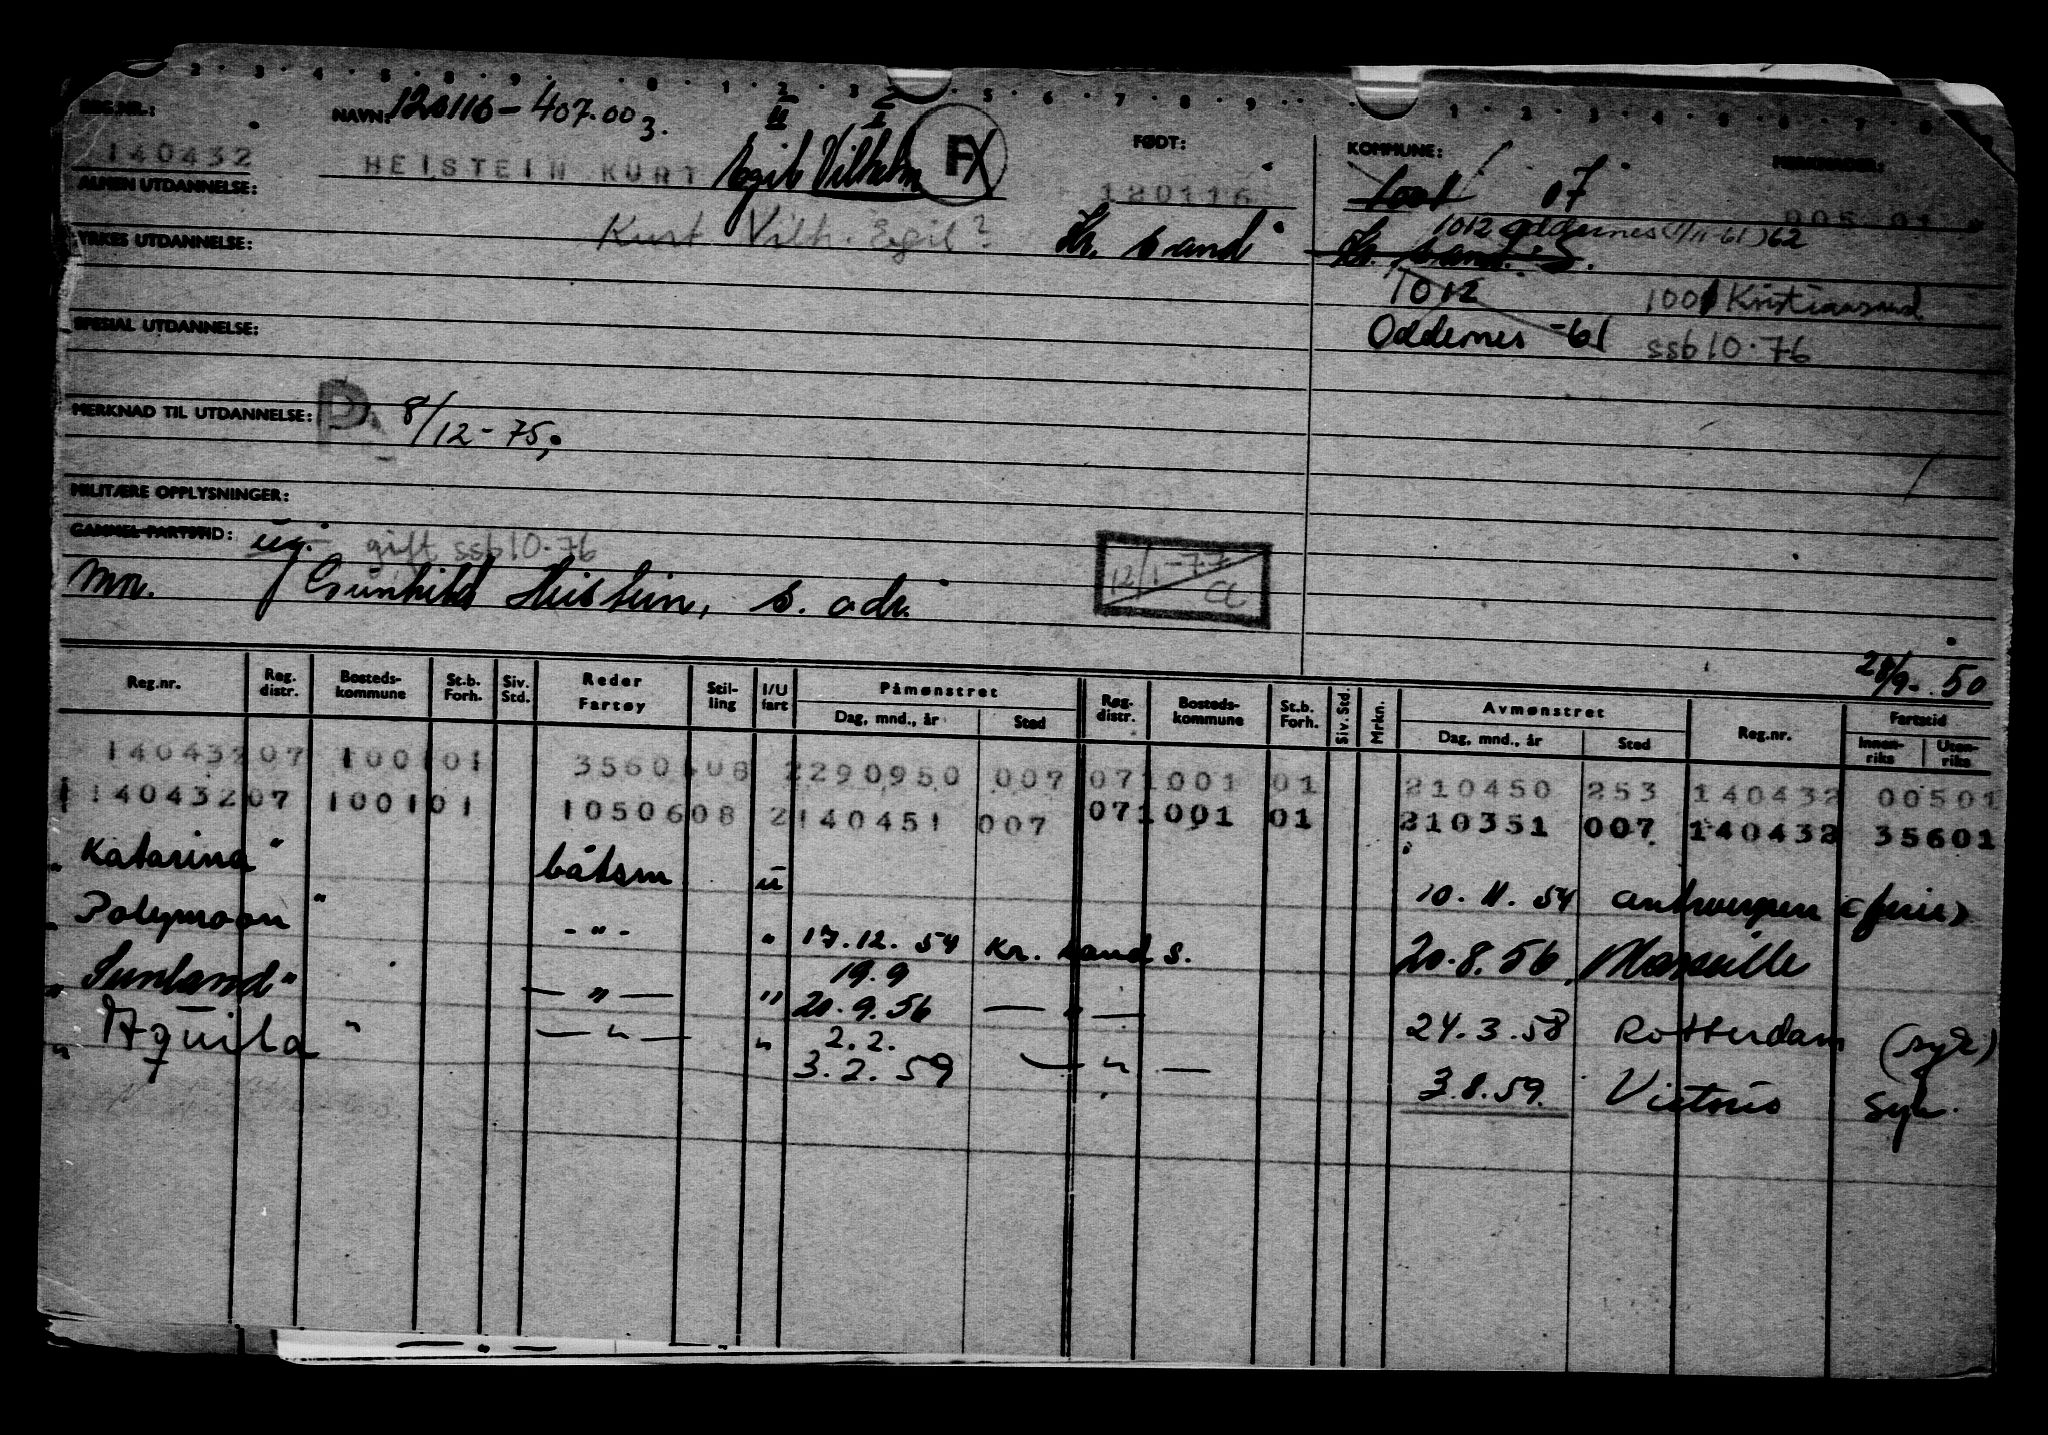 REG.NR.: NAVN: 120116-407.00 3. FØDT: KOMMUNE: MERKNADER:
140432 HEISTEIN KURT Egil Vilhelm FX 120116 1001 07 005 01
ALMEN UTDANNELSE:
Kurt Vilh. Egil? Kr. sand 1012 Oddernes (1/11-61) 62
YRKES UTDANNELSE: Kr. sand. S.
1012 1001 Kristiansand
SPESIAL UTDANNELSE: Oddernes -61 ssb 10.76
MERKNAD TIL UTDANNELSE: 8/12-75
MILITÆRE OPPLYSNINGER:
GAMMEL FARTSTID: ug. gift ssb 10.76
12/1-77
mn. Gunhild Heistein, s. adr.
28/9-50
Reg.nr. Reg. distr. Bosteds-kommune St.b. Forh. Siv. Std. Reder Fartøy Stil-ling I/U fart Påmønstret Dag, mnd., år Sted Reg. distr. Bosteds-kommune St.b. Forh. Siv. Std. Mrkn. Avmønstret Dag, mnd., år Sted Reg.nr. Fartstid Innen-riks Uten-riks
140432 07 1001 01 3560608 2 290950 007 07 1001 01 210450 253 140432 00501
1 140432 07 1001 01 1050608 2 140451 007 07 1001 01 210351 007 140432 35601
" Katarina " båtsm u 10.11.54 Antwerpen (ferie)
" Polymoon " - " - " 17.12.54 Kr. sand S. 20.8.56 Marseille
19.9
" Sunland " — " — " 20.9.56 — " — 24.3.58 Rotterdam (syk)
2.2.
" Aquila " — " — " 3.2.59 — " — 3.8.59. Victoria syk.